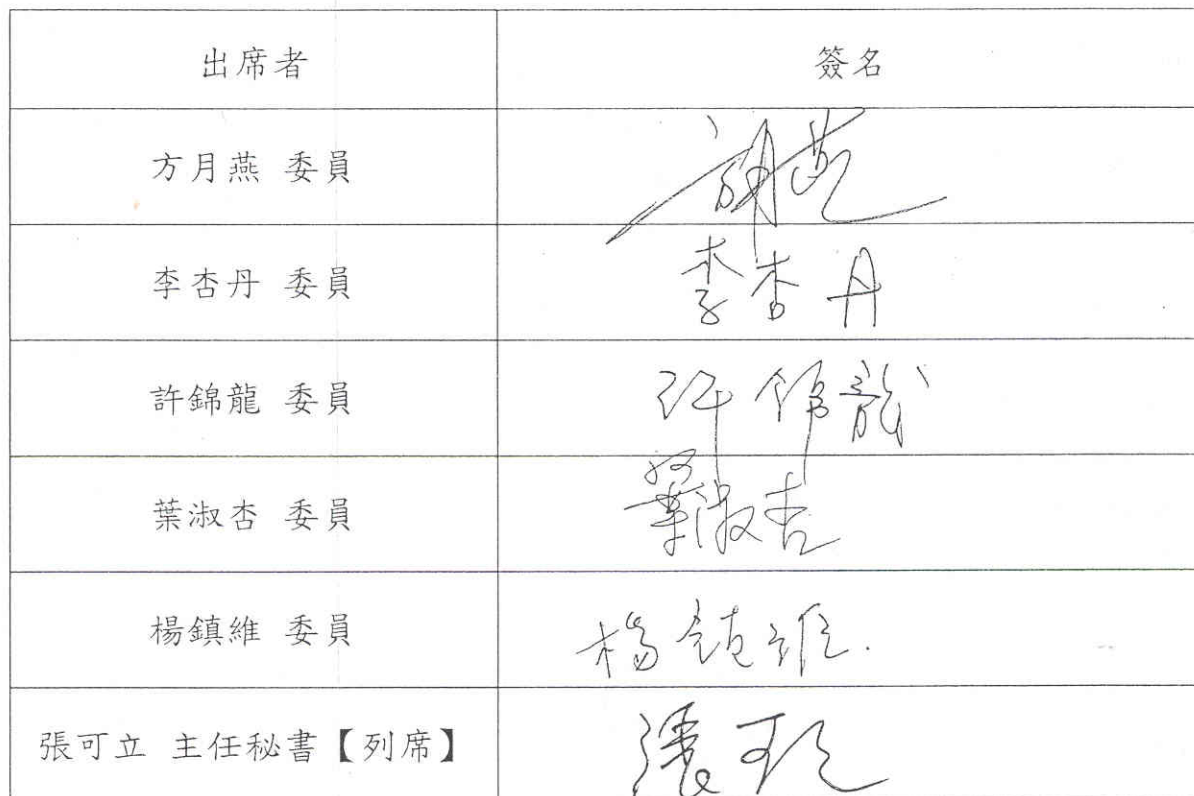 出席者 簽名
方月燕 委員 方月燕
李杏丹 委員 李杏丹
許錦龍 委員 許錦龍
葉淑杏 委員 葉淑杏
楊鎮維 委員 楊鎮維.
張可立 主任秘書【列席】 張可立